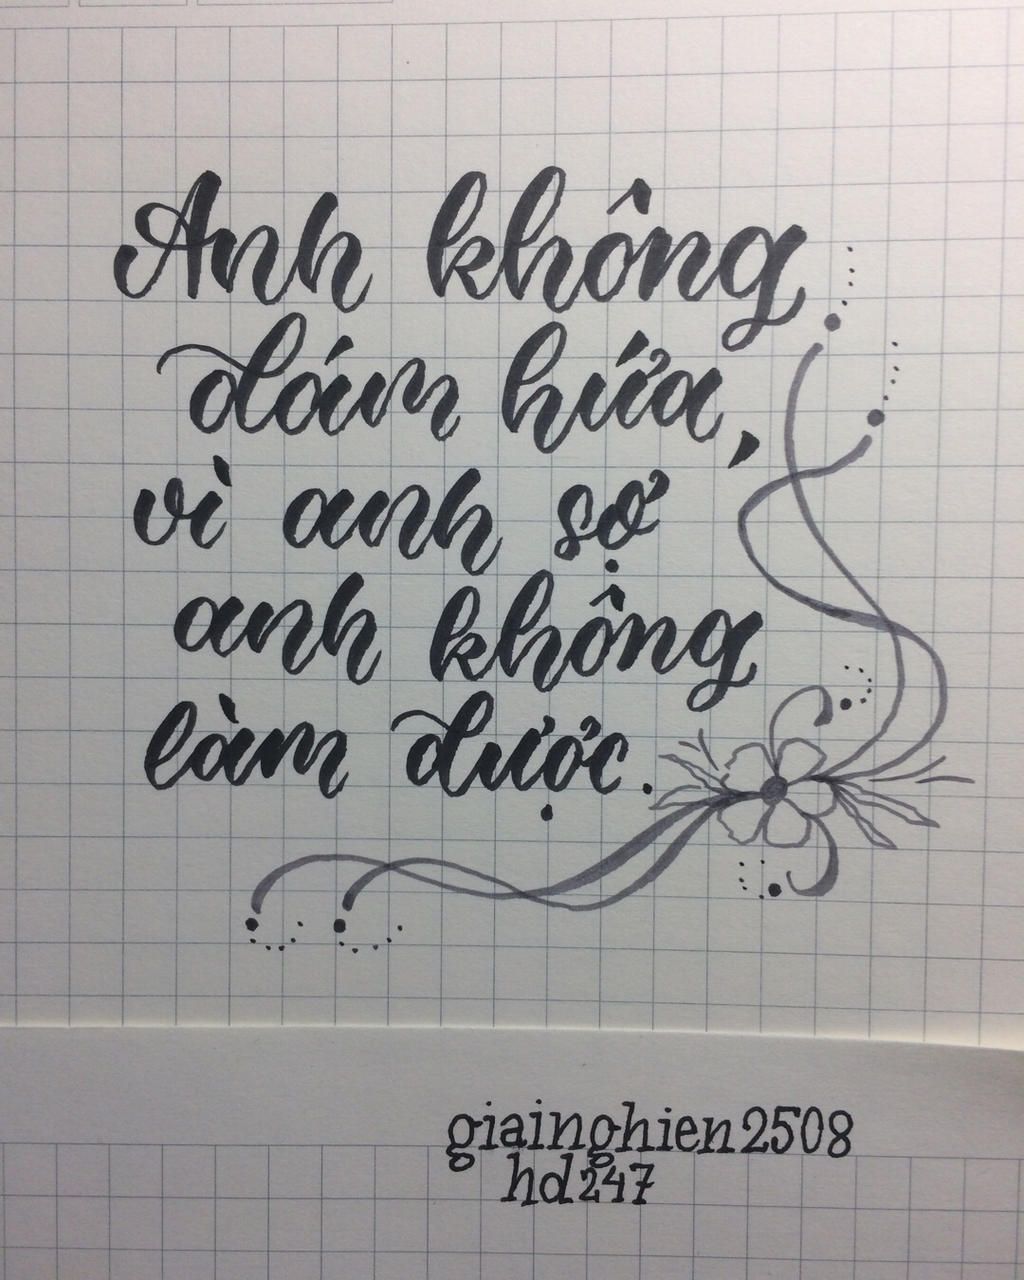 Anh không
dám hứa,
vì anh sợ
anh không
làm được.
giainghien2508
hd247